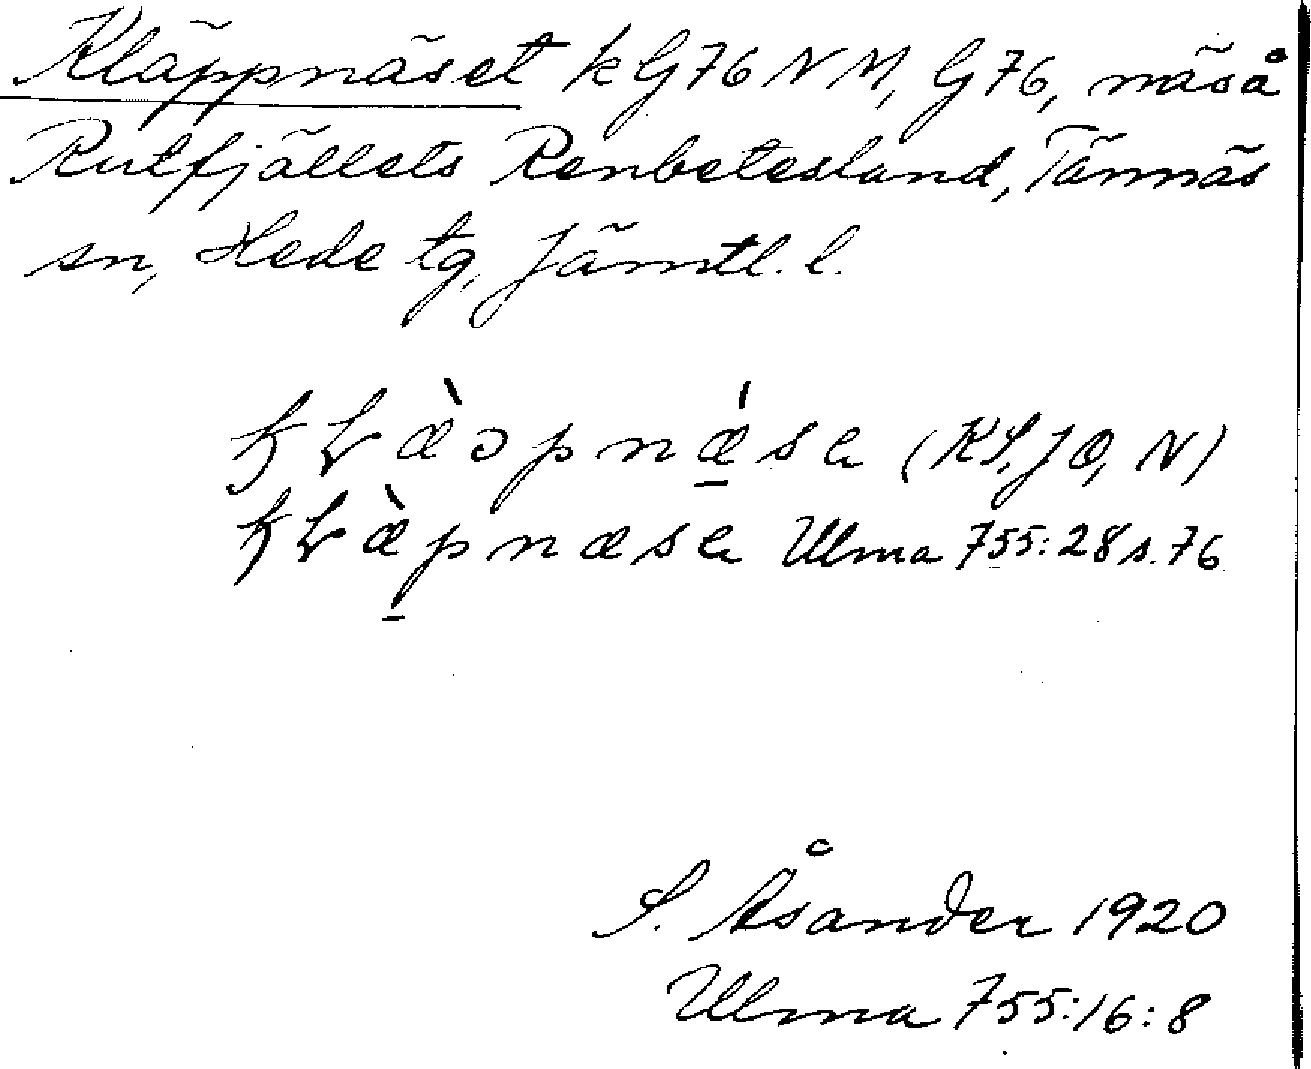 Kläppnäset k G76 NM, G76, näså
Rutfjällets Renbetesland, Tännäs
sn, Hede tg, Jämtl. l.
(KS, JO, N)
Ulma 755:28 s. 76
S. Åsander 1920
Ulma 755:16:8